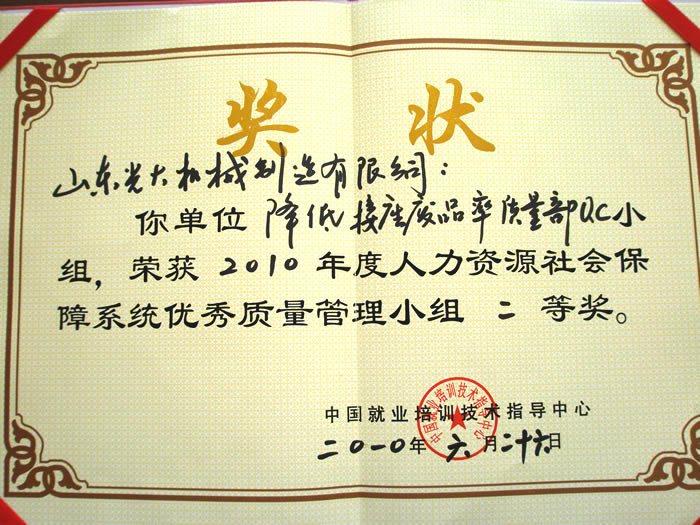 奖状
山东光大机械制造有限公司：
你单位 降低接座废品率质量部QC小
组，荣获 2010 年度人力资源社会保
障系统优秀质量管理小组 二 等奖。
中国就业培训技术指导中心
中国就业培训技术指导中心
二〇一〇年 六 月二十六日